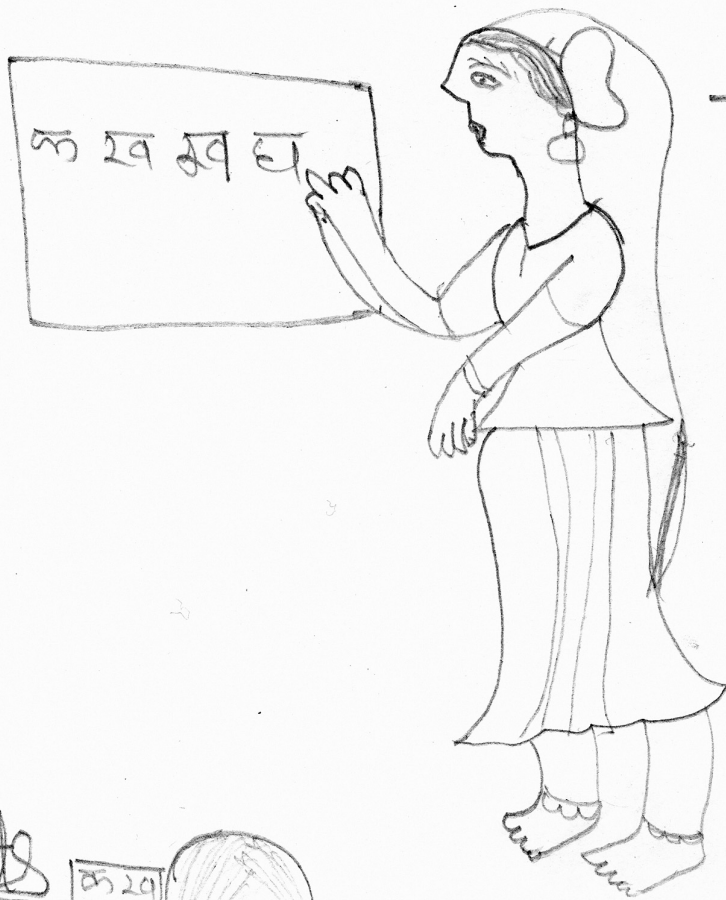 क ख ख घ
क ख